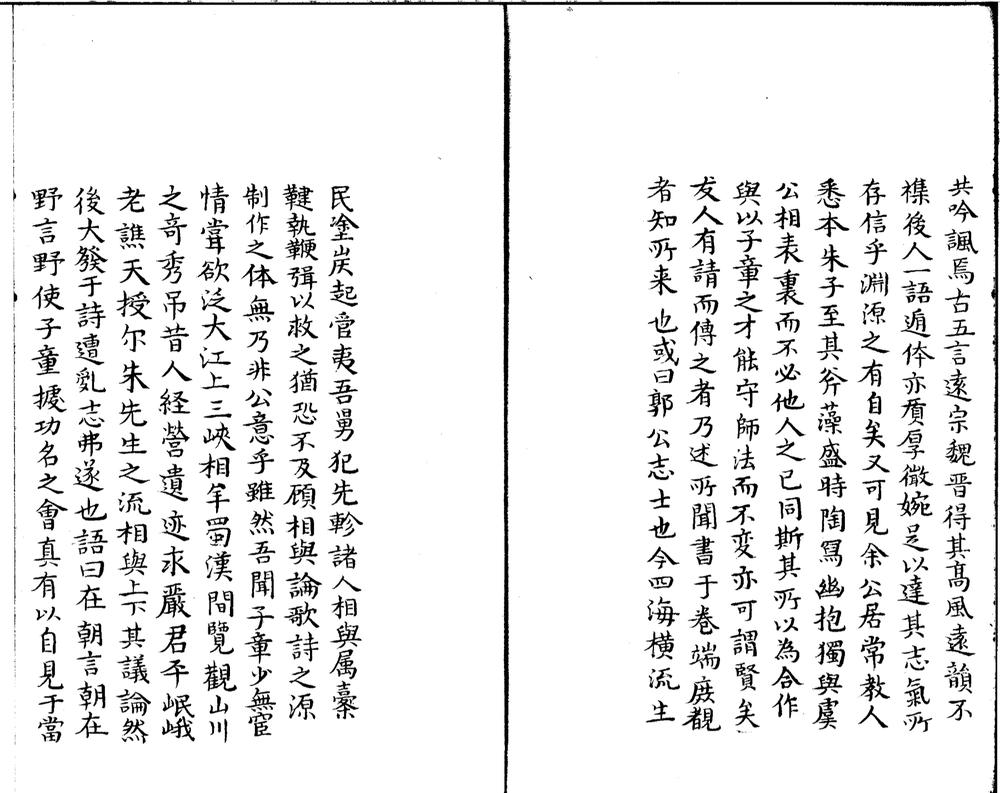 共吟諷焉古五言遠宗魏晋得其髙風遠韻不
襍後人一語逓体亦質厚微婉足以達其志氣所
存信乎淵源之有自矣又可見余公居常教人
悉本朱子至其斧藻盛時陶冩幽抱獨與虞
公相表裏而不必他人之已同斯其所以為合作
與以子章之才能守師法而不变亦可謂賢矣
友人有請而傳之者乃述所聞書于卷端庻覩
者知所来也或曰郭公志士也今四海横流生
民塗炭起管夷吾舅犯先軫諸人相與属櫜
鞬執鞭弭以救之猶恐不及顧相與論歌詩之源
制作之体無乃非公意乎雖然吾聞子章少無宦
情甞欲泛大江上三峽相羊蜀漢間覽觀山川
之竒秀吊昔人経營遺迹求嚴君平岷峨
老譙天授尔朱先生之流相與上下其議論然
後大發于詩遭亂志弗遂也語曰在朝言朝在
野言野使子童據功名之會真有以自見于當